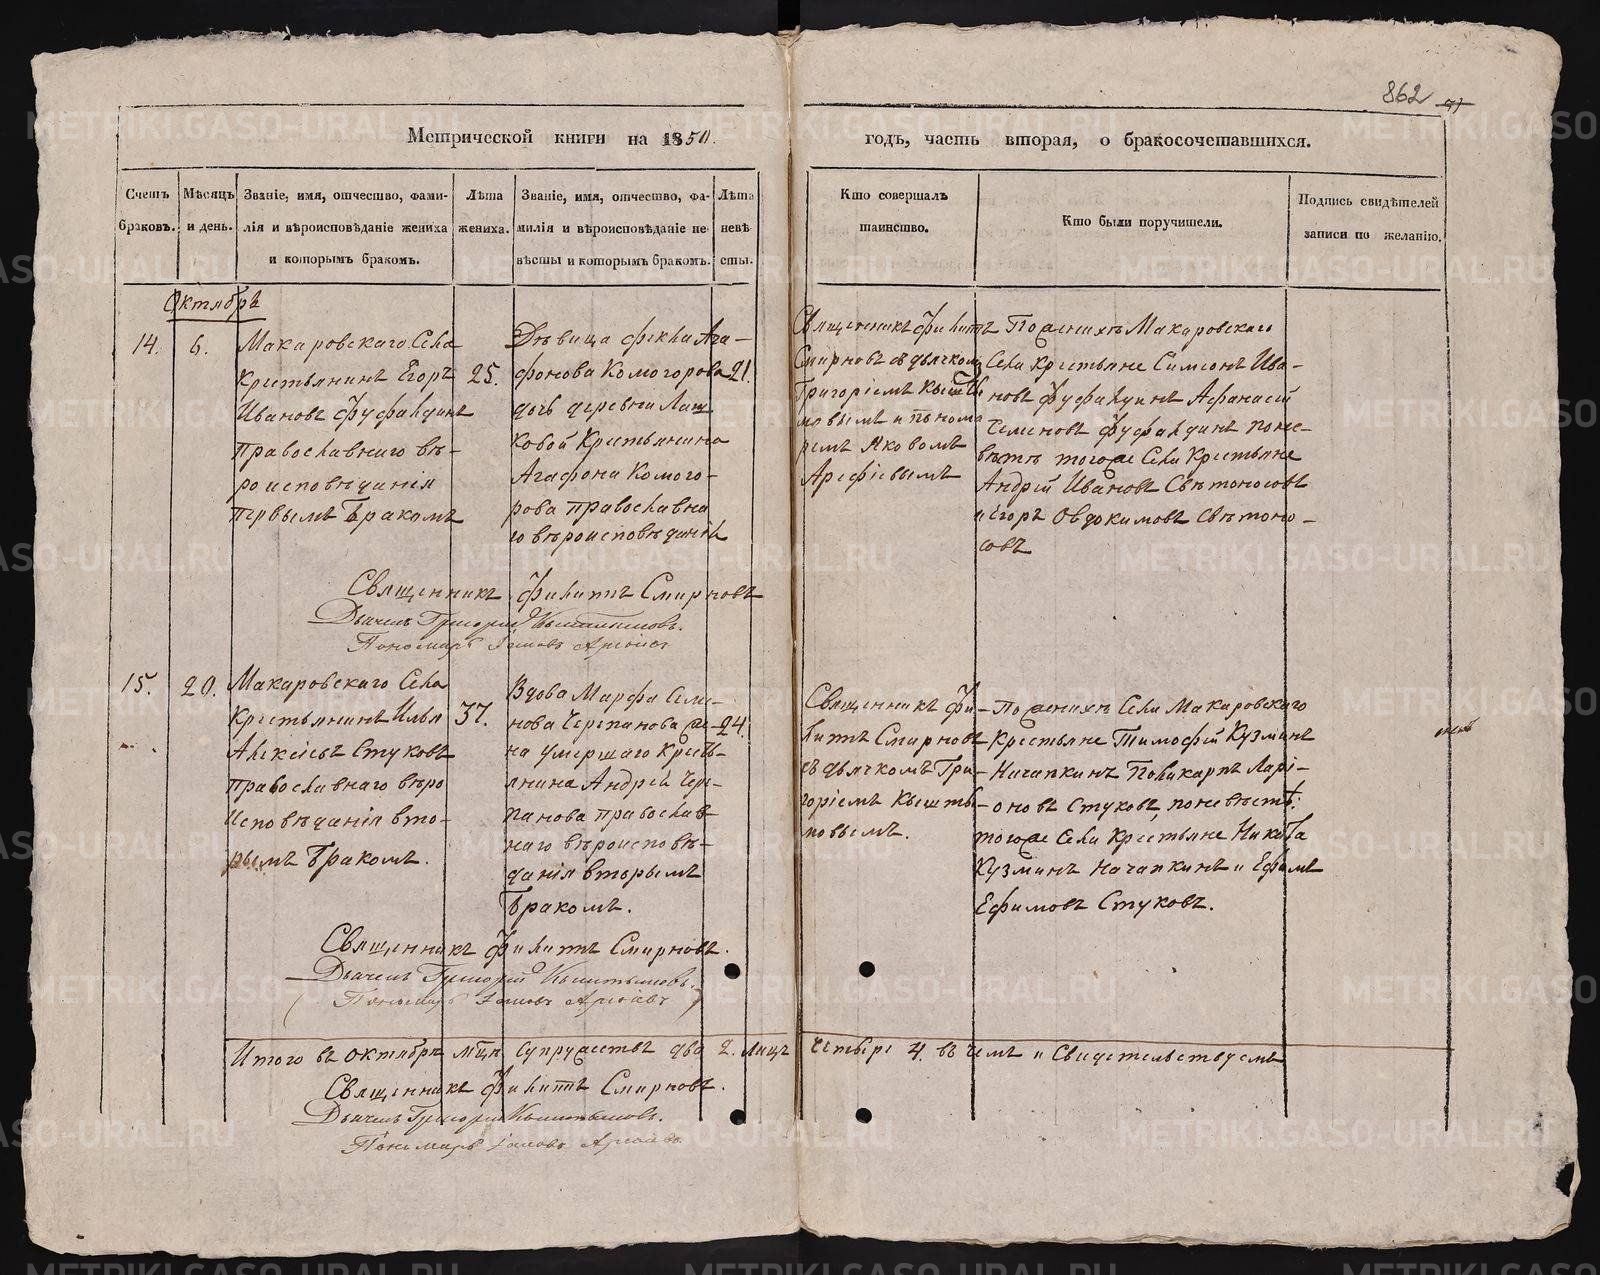 862
Метрической книги на 1850.
годъ, часть вторая, о бракосочетавшихся.
Счетъ браковъ.
Мѣсяцъ и день.
Званіе, имя, отчество, фами-
лія и вѣроисповѣданіе жениха
и которымъ бракомъ.
Лѣта
жениха.
Званіе, имя, отчество, фа-
милія и вѣроисповѣданіе не-
вѣсты и которымъ бракомъ.
Лѣта
невѣ
сты.
Кто совершалъ
таинство.
Кто были поручители.
Подпись свидѣтелей
записи по желанію.
Октябрь
14.
6.
Макаровскаго Села
Крестьянинъ Егоръ
Ивановъ Фуфалдинъ
православнаго вѣ-
роисповѣданія
первымъ бракомъ
25.
Дѣвица Фекла Ага-
фонова Комогорова
дочь деревни Лаш
ковой Крестьянина
Агафона Комого-
рова православна
го вѣроисповѣданія
21.
Священникъ Филиппъ
Смирновъ съ дьячкомъ
Григоріемъ Кышты
мовымъ и понома
ремъ Яковомъ
Арефіевымъ
По женихѣ Макаровскаго
Села крестьяне Симеонъ Ива-
новъ Фуфалдинъ Афанасій
Семеновъ Фуфалдинъ поне-
вѣстѣ тогоже Села Крестьяне
Андрей Ивановъ Свѣтоносовъ
и Егоръ Овдокимовъ Свѣтоно-
совъ
Священникъ Филиппъ Смирновъ
Дьячекъ Григорій Кыштымовъ.
Пономарь Іаковъ Арефіевъ
15.
20.
Макаровскаго Села
Крестьянинъ Илья
Алексѣевъ Стуковъ
православнаго вѣро
исповѣданія вто-
рымъ бракомъ.
37.
Вдова Марфа Семе-
нова Черепанова же-
на умершаго Кресть-
янина Андрея Чере-
панова православ-
наго вѣроисповѣ-
данія вторымъ
бракомъ.
24.
Священникъ Фи-
липпъ Смирновъ
съ дьячкомъ Гри-
горіемъ Кышты-
мовымъ.
По женихѣ Села Макаровскаго
Крестьяне Тимофей Кузминъ
Начапкинъ Поликарпъ Ларі-
оновъ Стуковъ, поневѣстѣ:
тогоже Села Крестьяне Никита
Кузминъ Начапкинъ и Ефимъ
Ефимовъ Стуковъ.
Священникъ Филиппъ Смирновъ.
Дьячекъ Григорій Кыштымовъ.
Пономарь Іаковъ Арефіевъ
Итого въ октябрѣ мцѣ супружествъ два 2. лицъ четыре 4. въ чемъ и Свидетельствуемъ
Священникъ Филиппъ Смирновъ.
Дьячекъ Григорій Кыштымовъ.
Пономарь Іаковъ Арефіевъ
METRIKI.GASO-URAL.RU